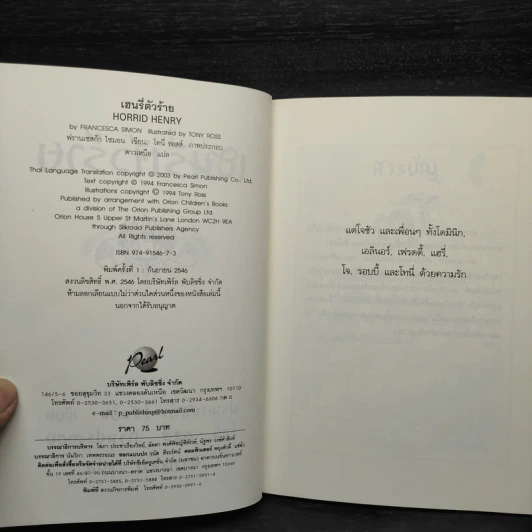 เฮนรี่ตัวร้าย
HORRID HENRY
by FRANCESCA SIMON Illustrated by TONY ROSS
ฟรานเซสก้า ไซมอน เขียน, โทนี่ รอสส์, ภาพประกอบ
ดาวเหนือ แปล
Thai Language Translation copyright © 2003 by Pearl Publishing Co., Ltd,
Text copyright © 1994 Francesca Simon
Illustrations copyright © 1994 Tony Ross
Published by arrangement with Orion Children's Books
a division of The Orion Publishing Group Ltd.
Orion House 5 Upper St Martin's Lane London WC2H 9EA
through Silkroad Publishers Agency
All Rights reserved
ISBN 974-91546-7-3
พิมพ์ครั้งที่ 1 : กันยายน 2546
สงวนลิขสิทธิ์ พ.ศ. 2546 โดยบริษัทเพิร์ล พับลิชชิ่ง จำกัด
ห้ามลอกเลียนแบบไม่ว่าส่วนใดส่วนหนึ่งของหนังสือเล่มนี้
นอกจากได้รับอนุญาต
Pearl
บริษัทเพิร์ล พับลิชชิ่ง จำกัด
146/5-6 ซอยสุขุมวิท 33 แขวงคลองตันเหนือ เขตวัฒนา กรุงเทพฯ 10110
โทรศัพท์ 0-2530-3651, 0-2530-3661 โทรสาร 0-2934-6606 กด 0
e-mail : p_publishing@hotmail.com
ราคา 75 บาท
แด่โจชัว และเพื่อนๆ ทั้งโดมินิก,
เอลินอร์, เฟรดดี้, แฮรี่,
โจ, รอบบี้ และโทนี่ ด้วยความรัก